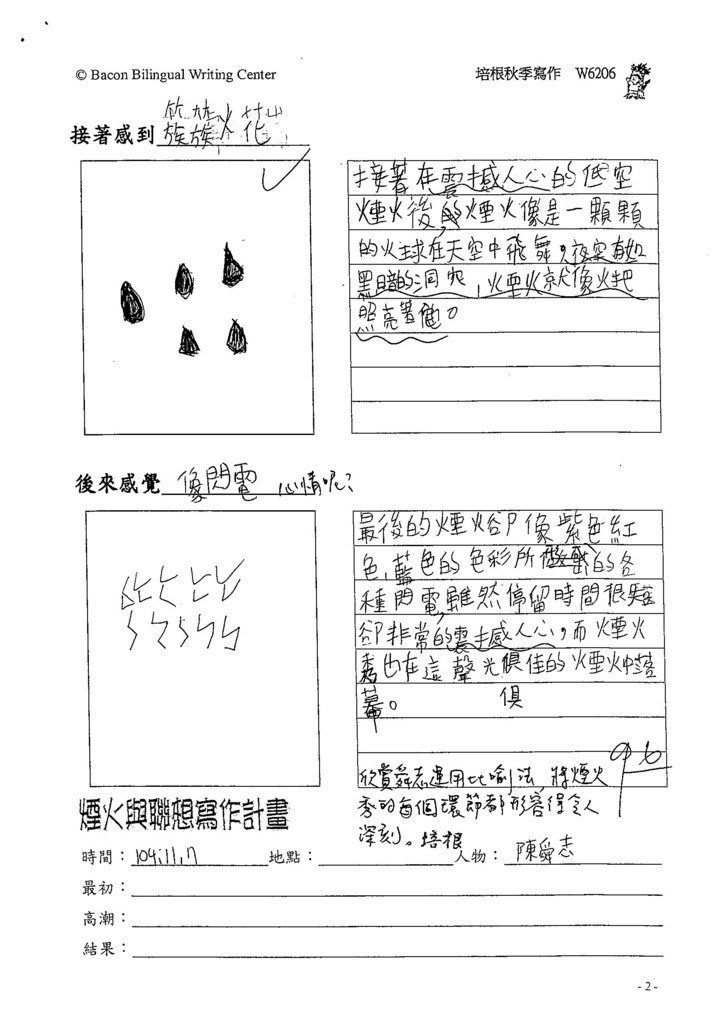 © Bacon Bilingual Writing Center
培根秋季寫作 W6206
接著感到 簇簇火花
接著在震撼人心的低空
煙火後,的煙火像是一顆顆
的火球在天空中飛舞。夜空有如
黑暗的洞爬,煙火就像火把
照亮著他。
後來感覺 像閃電 心情呢?
最後的煙火卻像紫色紅
色,藍色的色彩所
的各
種閃電,雖然停留時間很短
卻非常的震撼人心。而煙火
秀也在這聲光俱佳的煙火中落
幕。
俱
96
欣賞舜志運用比喻法,將煙火
秀的每個環節都形容得令人
深刻。培根
煙火與聯想寫作計畫
時間:104.11.7 地點: 人物:陳舜志
最初:
高潮:
結果:
- 2 -